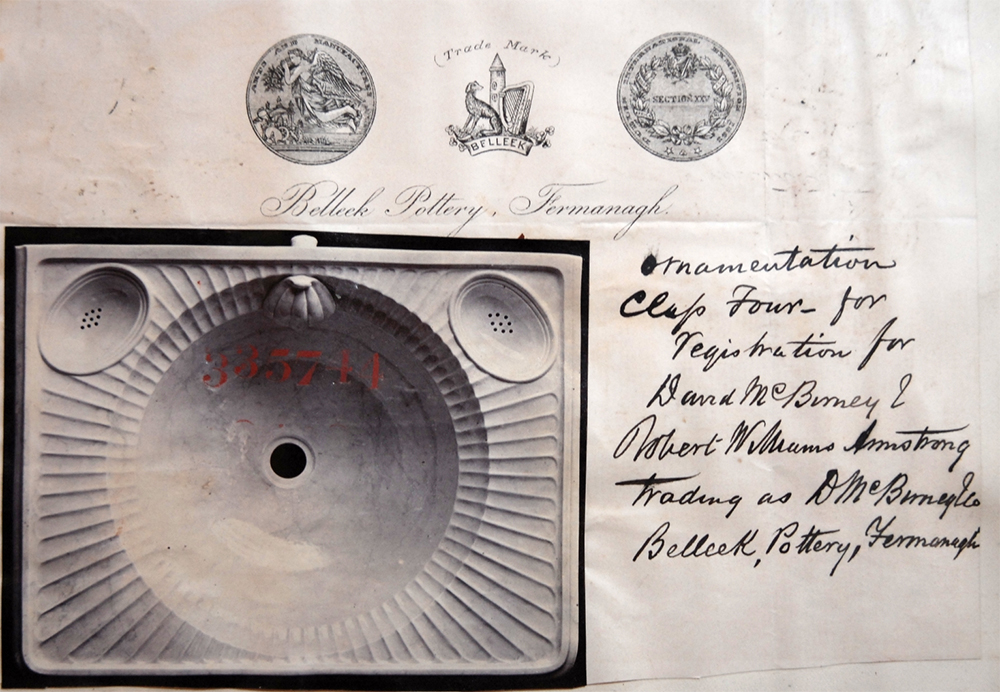 ARTS AND MANUFACTURES
(Trade Mark)
BELLEEK
DUBLIN INTERNATIONAL EXHIBITION 1865
SECTION XXV
Belleek Pottery, Fermanagh.
Ornamentation
Class Four - for
registration for
David McBirney &
Robert Williams Armstrong
trading as D McBirney & Co
Belleek, Pottery, Fermanagh